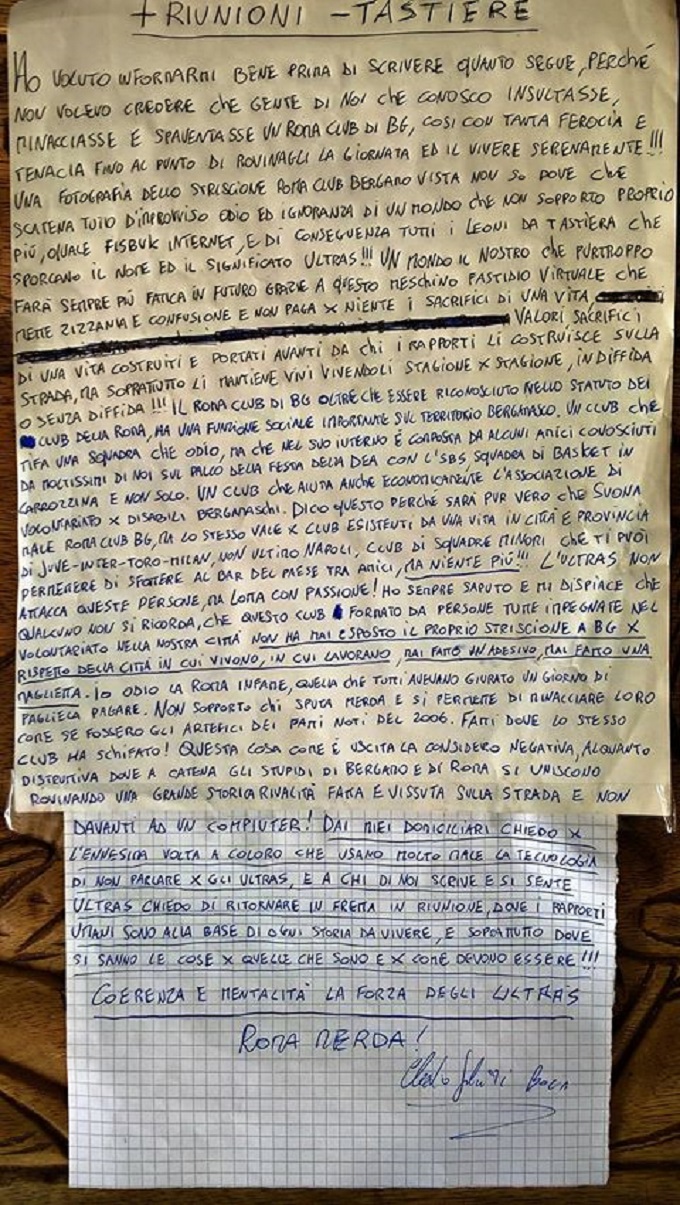 + RIUNIONI - TASTIERE
HO VOLUTO INFORMARMI BENE PRIMA DI SCRIVERE QUANTO SEGUE, PERCHÉ
NON VOLEVO CREDERE CHE GENTE DI NOI CHE CONOSCO INSULTASSE,
MINACCIASSE E SPAVENTASSE UN ROMA CLUB DI BG, COSI CON TANTA FEROCIA E
TENACIA FINO AL PUNTO DI ROVINAGLI LA GIORNATA ED IL VIVERE SERENAMENTE!!!
UNA FOTOGRAFIA DELLO STRISCIONE ROMA CLUB BERGAMO VISTA NON SO DOVE CHE
SCATENA TUTO D'IMPROVVISO ODIO ED IGNORANZA DI UN MONDO CHE NON SOPPORTO PROPRIO
PIÚ, QUALE FISBUK INTERNET, E DI CONSEGUENZA TUTTI I LEONI DA TASTIERA CHE
SPORCANO IL NOME ED IL SIGNIFICATO ULTRAS!!! UN MONDO IL NOSTRO CHE PURTROPPO
FARÀ SEMPRE PIÚ FATICA IN FUTURO GRAZIE A QUESTO MESCHINO FASTIDIO VIRTUALE CHE
METTE ZIZZANIA E CONFUSIONE E NON PAGA X NIENTE I SACRIFICI DI UNA VITA,
VALORI SACRIFICI
DI UNA VITA COSTRUITI E PORTATI AVANTI DA CHI I RAPPORTI LI COSTRUISCE SULLA
STRADA, MA SOPRATTUTTO LI MANTIENE VIVI VIVENDOLI STAGIONE X STAGIONE, IN DIFFIDA
O SENZA DIFFIDA!!! IL ROMA CLUB DI BG OLTRE CHE ESSERE RICONOSCIUTO NELLO STATUTO DEI
CLUB DELLA ROMA, HA UNA FUNZIONE SOCIALE IMPORTANTE SUL TERRITORIO BERGAMASCO. UN CLUB CHE
TIFA UNA SQUADRA CHE ODIO, MA CHE NEL SUO INTERNO É COMPOSTA DA ALCUNI AMICI CONOSCIUTI
DA MOLTISSIMI DI NOI SUL PALCO DELLA FESTA DELLA DEA CON L'SBS SQUADRA DI BASKET IN
CARROZZINA E NON SOLO. UN CLUB CHE AIUTA ANCHE ECONOMICAMENTE L'ASSOCIAZIONE DI
VOLONTARIATO X DISABILI BERGAMASCHI. DICO QUESTO PERCHÉ SARÁ PUR VERO CHE SUONA
MALE ROMA CLUB BG, MA LO STESSO VALE X CLUB ESISTENTI DA UNA VITA IN CITTÀ E PROVINCIA
DI JUVE-INTER-TORO-MILAN, NON ULTIMO NAPOLI, CLUB DI SQUADRE MINORI CHE TI PUOI
PERMETTERE DI SFOTTERE AL BAR DEL PAESE TRA AMICI, MA NIENTE PIÚ!!! L'ULTRAS NON
ATTACCA QUESTE PERSONE, MA LOTTA CON PASSIONE! HO SEMPRE SAPUTO E MI DISPIACE CHE
QUALCUNO NON SI RICORDA, CHE QUESTO CLUB FORMATO DA PERSONE TUTTE IMPEGNATE NEL
VOLONTARIATO NELLA NOSTRA CITTÀ NON HA MAI ESPOSTO IL PROPRIO STRISCIONE A BG X
RISPETTO DELLA CITTÀ IN CUI VIVONO, IN CUI LAVORANO, MAI FATTO UN ADESIVO, MAI FATTO UNA
MAGLIETTA. IO ODIO LA ROMA INFAME, QUELLA CHE TUTTI AVEVANO GIURATO UN GIORNO DI
FAGLIELA PAGARE. NON SOPPORTO CHI SPUTA MERDA E SI PERMETTE DI MINACCIARE LORO
COME SE FOSSERO GLI ARTEFICI DEI FATTI NOTI DEL 2006. FATTI DOVE LO STESSO
CLUB HA SCHIFATO! QUESTA COSA COME É USCITA LA CONSIDERO NEGATIVA, ALQUANTO
DISTRUTTIVA DOVE A CATENA GLI STUPIDI DI BERGAMO E DI ROMA SI UNISCONO
ROVINANDO UNA GRANDE STORICA RIVALITÀ FATTA E VISSUTA SULLA STRADA E NON
DAVANTI AD UN COMPIUTER! DAI MIEI DOMICILIARI CHIEDO X
L'ENNESIMA VOLTA A COLORO CHE USANO MOLTO MALE LA TECNOLOGIA
DI NON PARLARE X GLI ULTRAS, E A CHI DI NOI SCRIVE E SI SENTE
ULTRAS CHIEDO DI RITORNARE IN FRETTA IN RIUNIONE, DOVE I RAPPORTI
UMANI SONO ALLA BASE DI OGNI STORIA DA VIVERE, E SOPRATTUTTO DOVE
SI SANNO LE COSE X QUELLE CHE SONO E X COME DEVONO ESSERE!!!
COERENZA E MENTALITÀ LA FORZA DEGLI ULTRAS
ROMA MERDA!